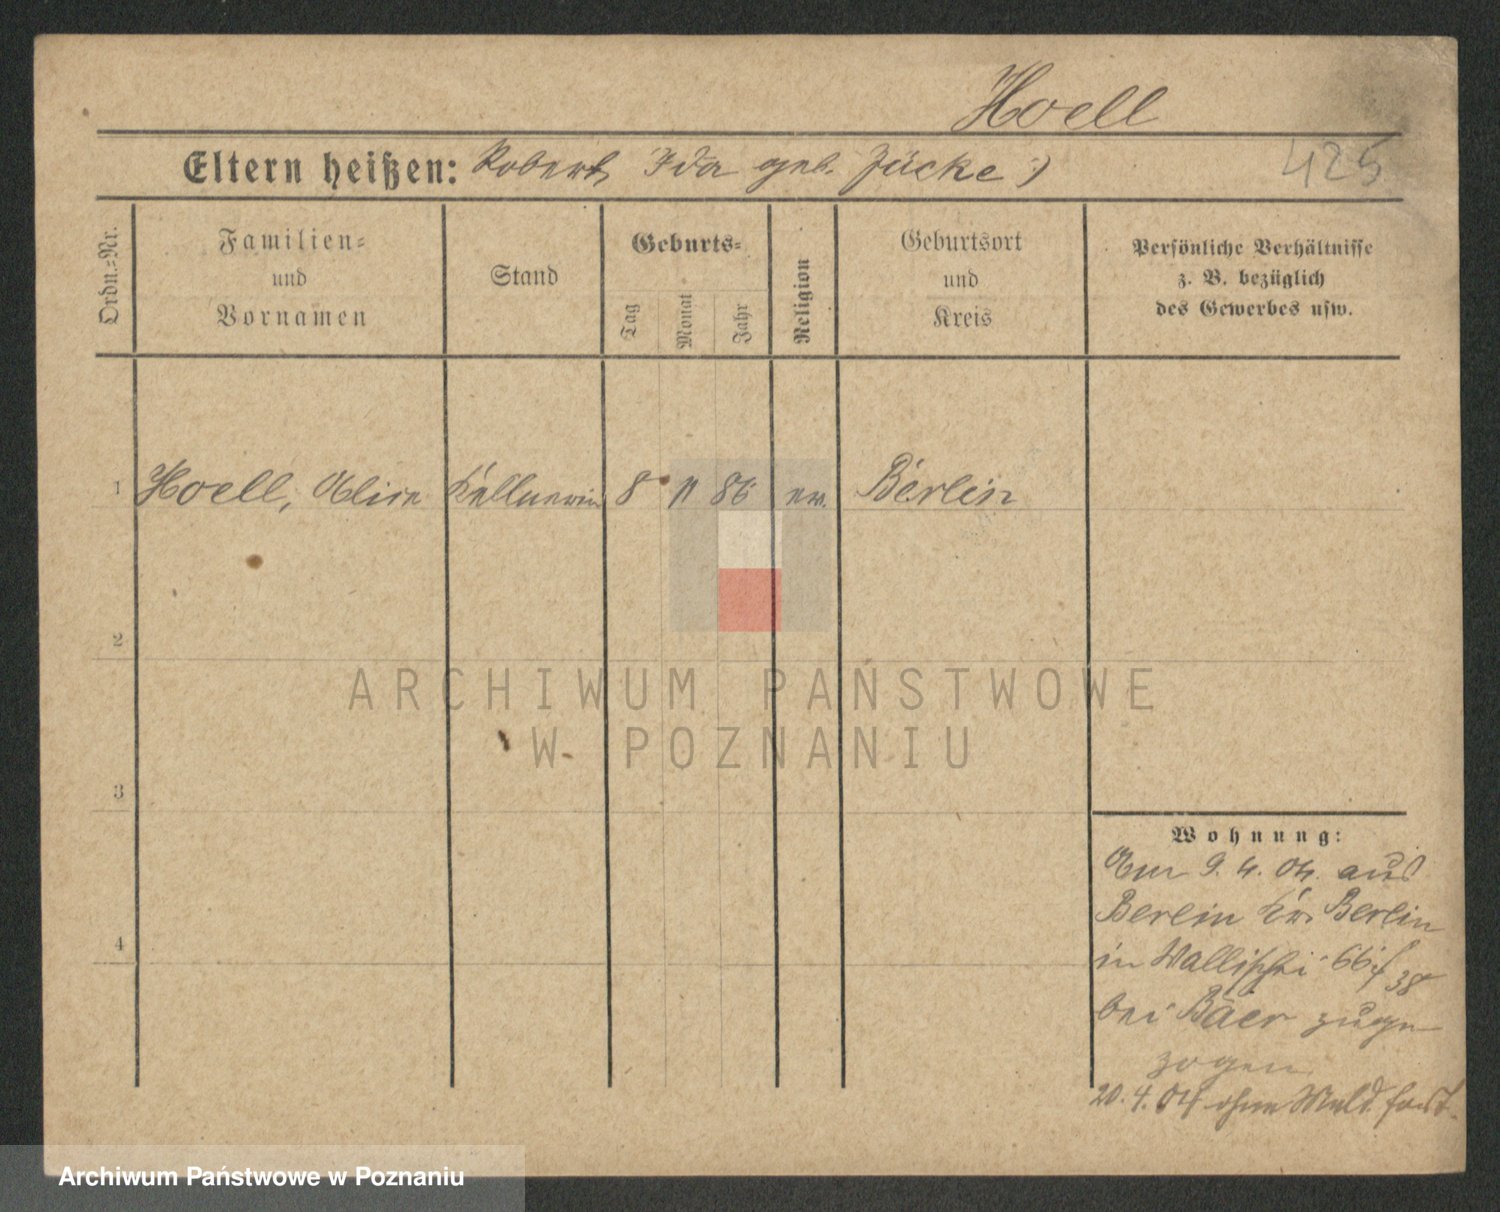 Hoell
Eltern heißen: Robert, Ida geb. Jücke)
425
Ordn.=Nr.
Familien=
und
Vornamen
Stand
Geburts=
Tag
Monat
Jahr
Religion
Geburtsort
und
Kreis
Persönliche Verhältnisse
z. B. bezüglich
des Gewerbes usw.
1 Hoell, Alice Kellnerin 8 11 86 ev. Berlin
2
ARCHIWUM PAŃSTWOWE
W POZNANIU
3
Wohnung:
Am 9. 4. 04. aus
Berlin Kr. Berlin
4
in Wallischei 66/ 38
bei Bäer zuge
zogen
20. 4. 04 ohne Meld. fort.
Archiwum Państwowe w Poznaniu